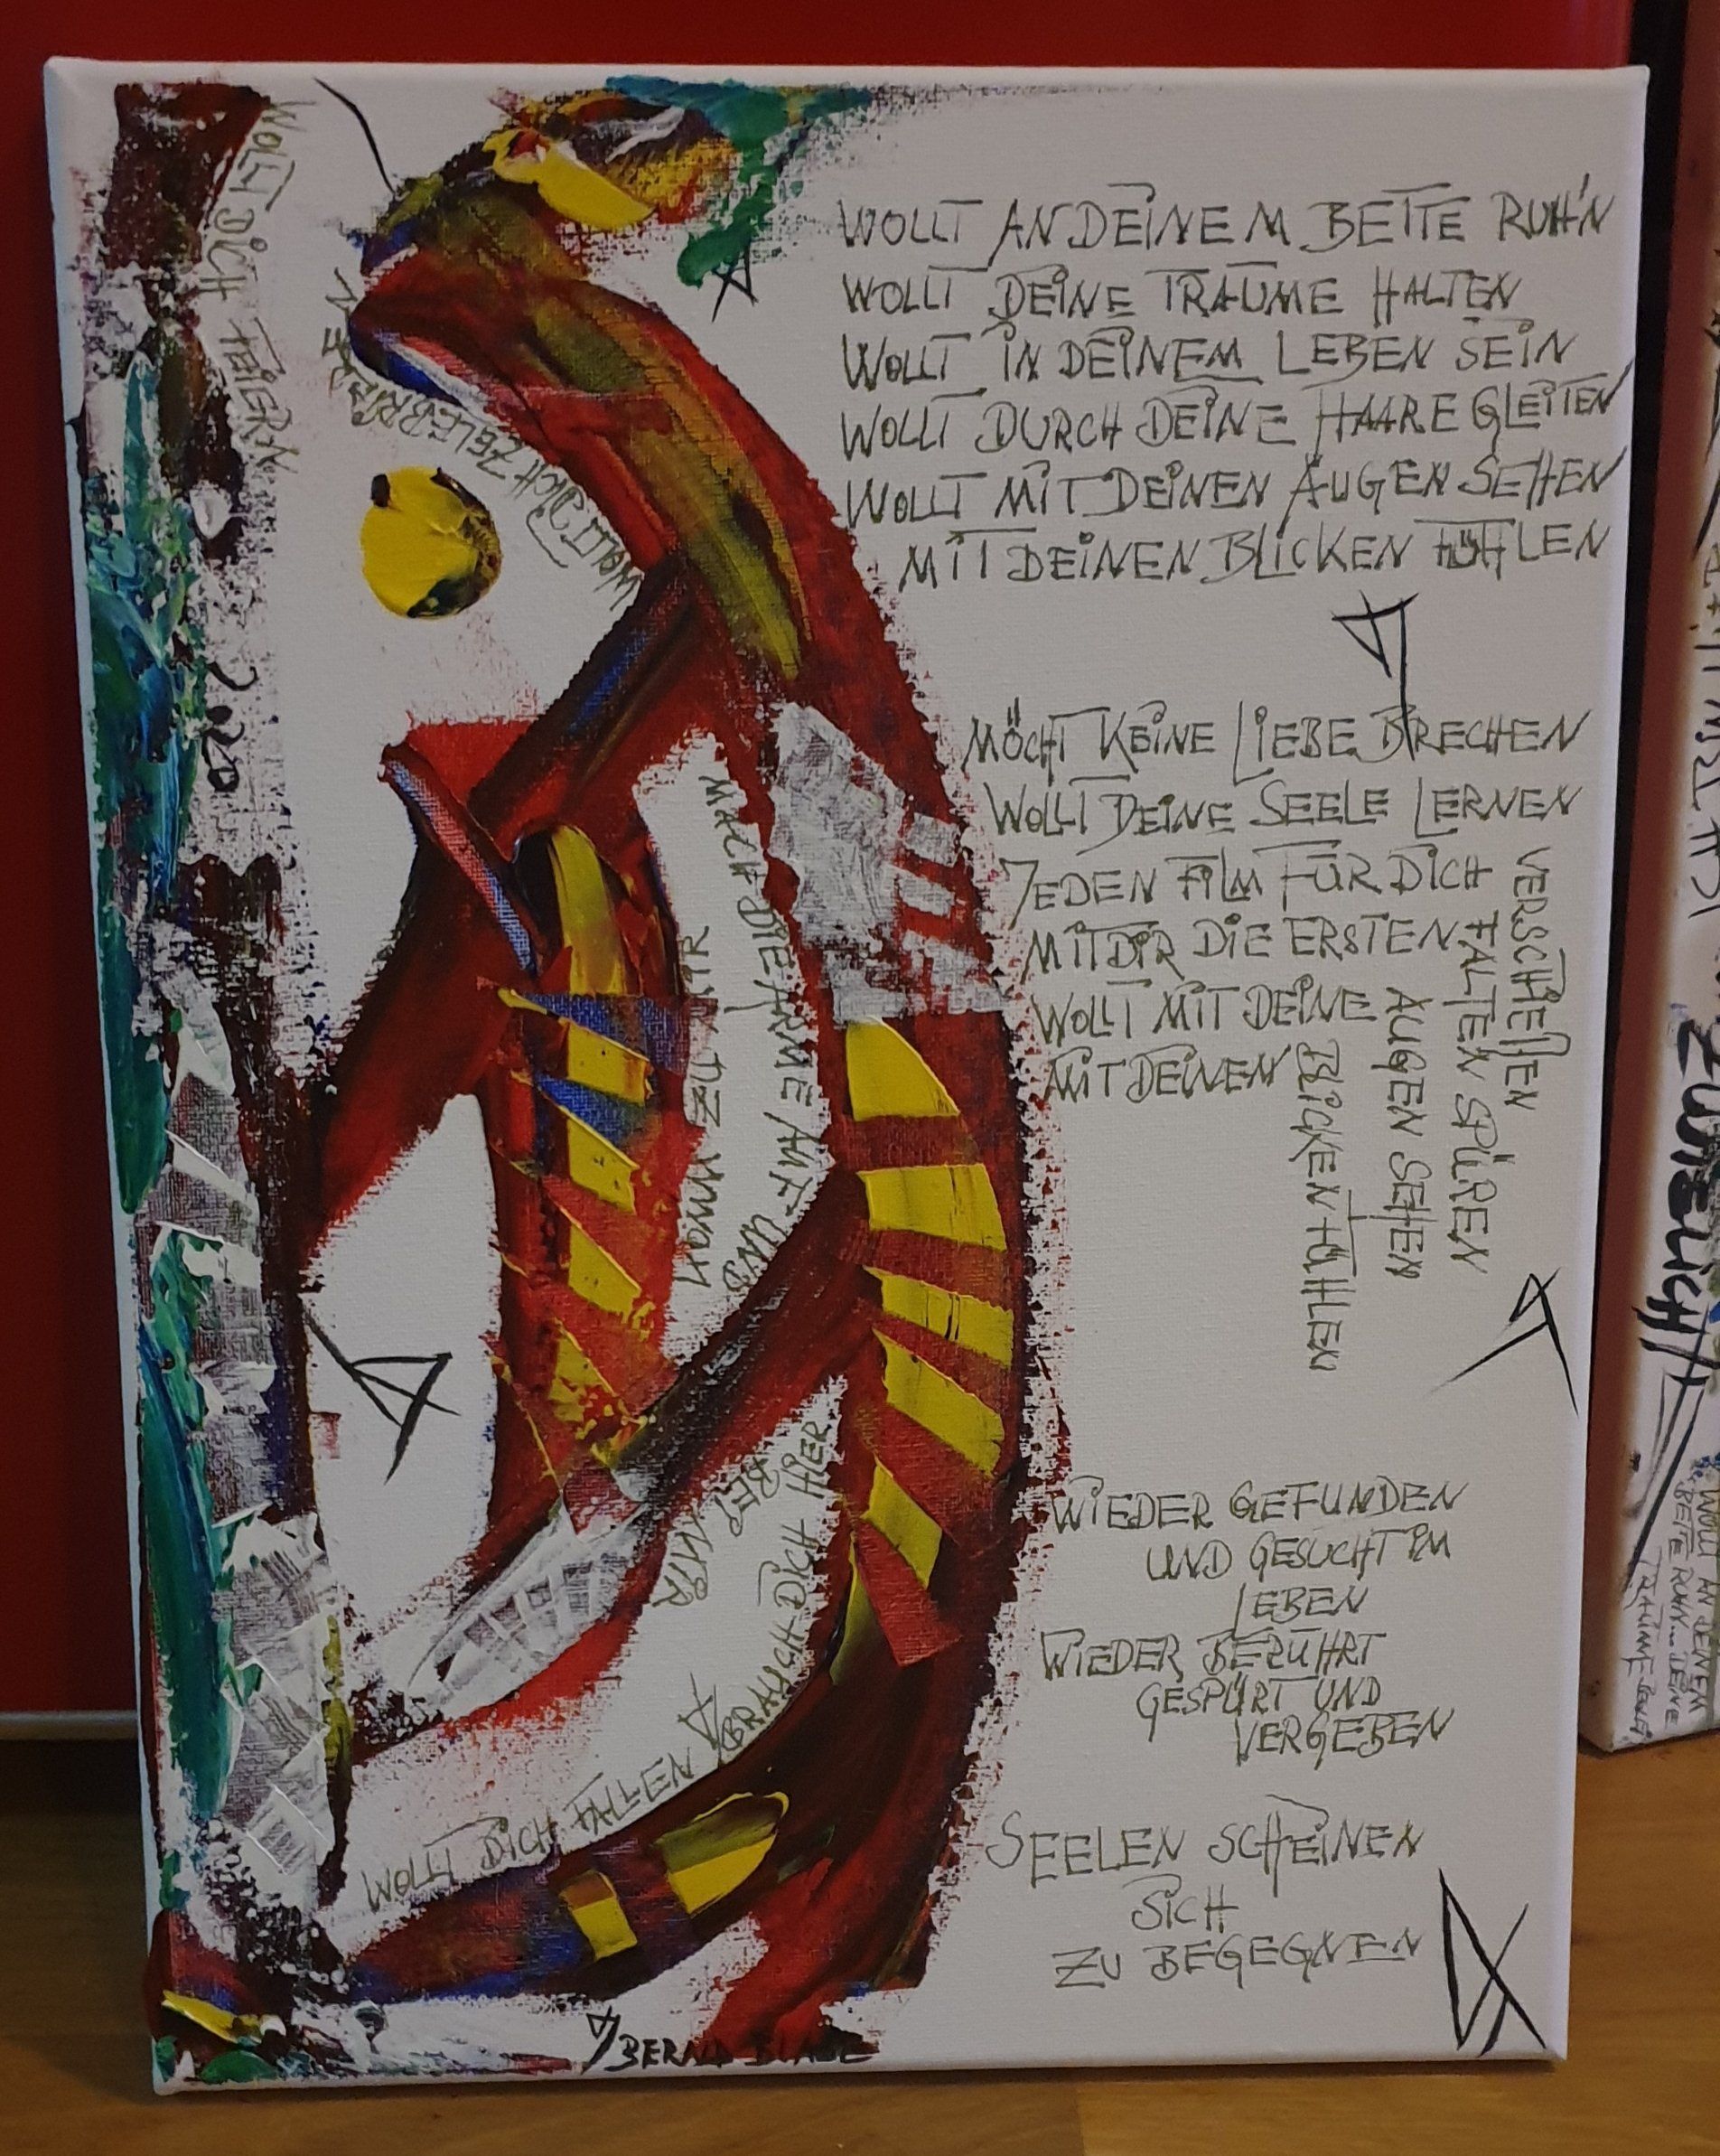 WOLLT AN DEINEM BETTE RUH'N
WOLLT DEINE TRÄUME HALTEN
WOLLT IN DEINEM LEBEN SEIN
WOLLT DURCH DEINE HAARE GLEITEN
WOLLT MIT DEINEN AUGEN SEHEN
MIT DEINEN BLICKEN FÜHLEN
MÖCHT KEINE LIEBE BRECHEN
WOLLT DEINE SEELE LERNEN
JEDEN FILM FÜR DICH VERSCHIEßEN
MIT DIR DIE ERSTEN FALTEN SPÜREN
WOLLT MIT DEINE AUGEN SEHEN
MIT DEINEN BLICKEN FÜHLEN
WIEDER GEFUNDEN
UND GESUCHT IM
LEBEN
WIEDER BERÜHRT
GESPÜRT UND
VERGEBEN
SEELEN SCHEINEN
SICH
ZU BEGEGNEN
WOLLT DICH FEIERN
WOLLT DICH ZELEBRIEREN
MACH DIE ARME AUF UND
KOMM ZU MIR
BEI MIR
WOLLT DICH FALLEN
BRAUCH DICH HIER
BERND
ZÄRTLICH
WOLLT AN DEINEM
BETTE RUHN... DEINE
TRÄUME